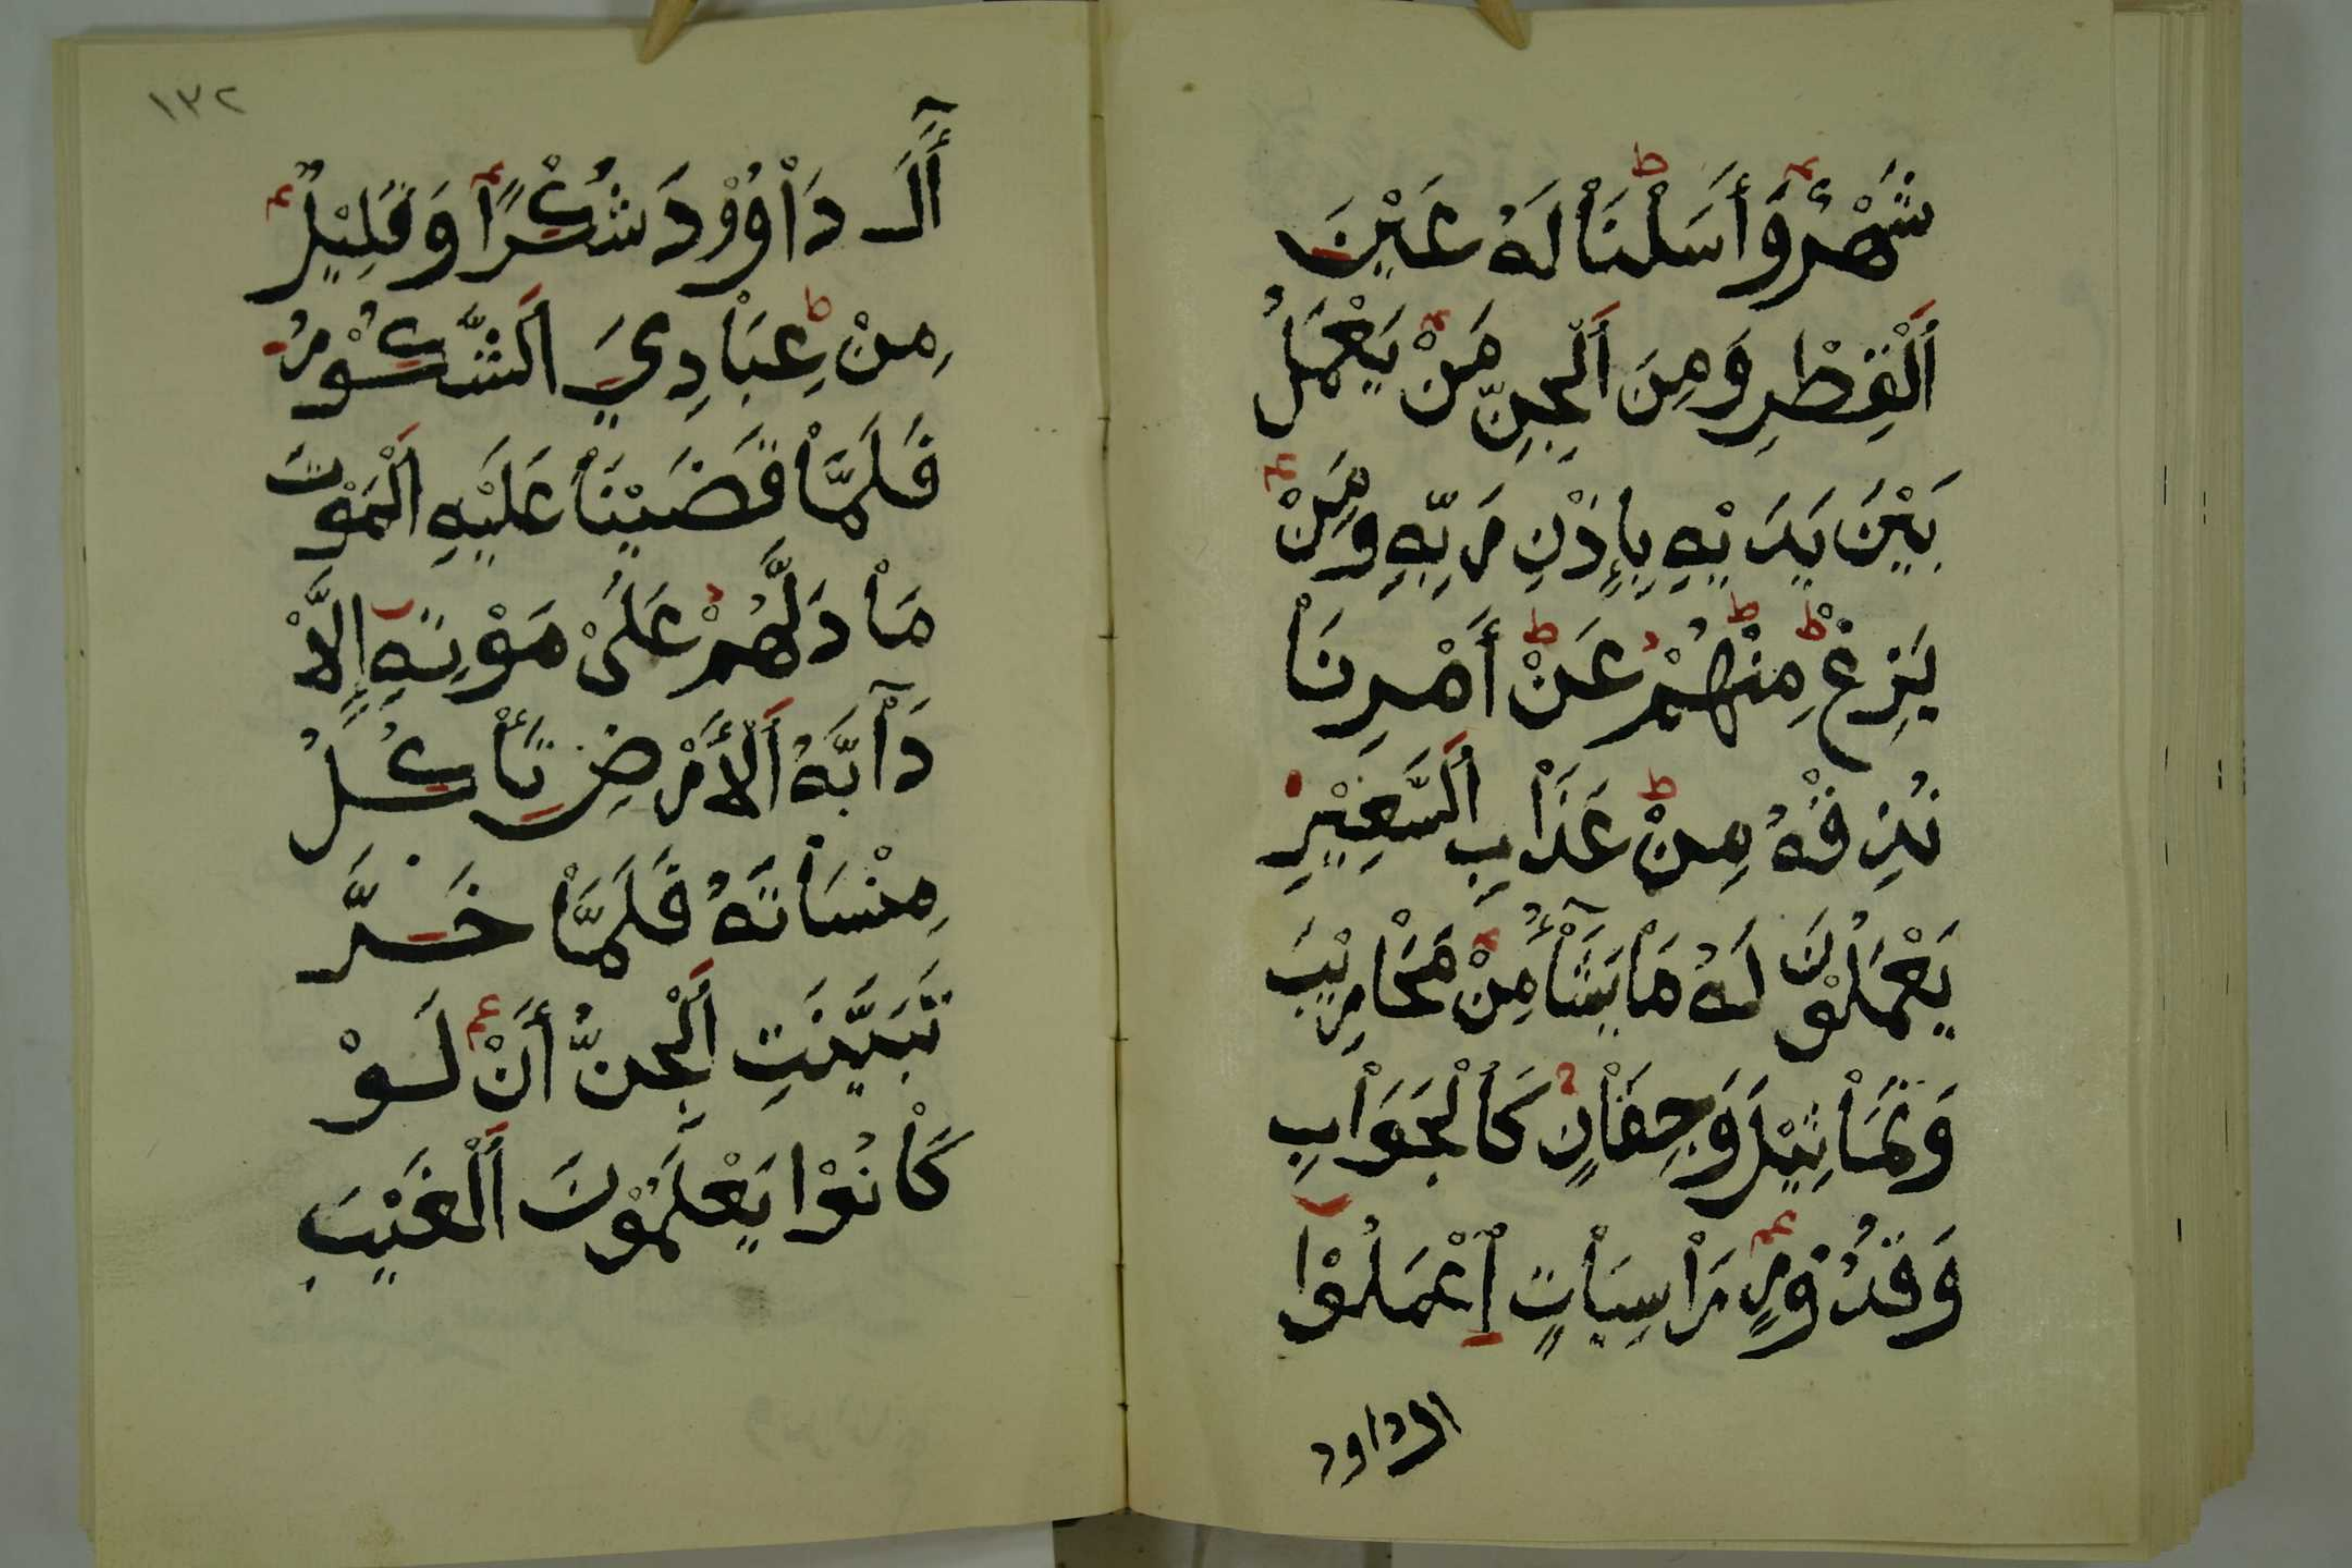 شَهْرٌ وَأَسَلْنَاْ لَهُ عَيْنَ
اَلْقِطْرِ وَمِنَ اَلْجِنِّ مَنْ يَعْمَلُ
بَيْنَ يَدَيْهِ بِإِذْنِ رَبِّهِ وَمَنْ
يَزِغْ مِنْهُمْ عَنْ أَمْرِنَاْ
نُذِقْهُ مِنْ عَذَاْبِ اَلسَّعِيْرِ
يَعْمَلُوْنَ لَهُ مَاْ يَشَآءُ مِنْ مَحَاْرِيْبَ
وَتَمَاْثِيْلَ وَجِفَاْنٍ كَاْلْجَوَاْبِ
وَقُدُوْرٍ رَاْسِيَاْتٍ اِعْمَلُوْا
ال داود
١٣٢
أَلَ دَاْوُوْدَ شُكْرًا وَقَلِيْلٌ
مِنْ عِبَاْدِيَ اَلشَّكُوْرُ
فَلَمَّاْ قَضَيْنَاْ عَلَيْهِ اَلْمَوْتَ
مَاْ دَلَّهُمْ عَلَىْ مَوْتِهِ إِلَّاْ
دَآبَّةُ اَلْأَرْضِ تَأْكُلُ
مِنْسَاْتَهُ فَلَمَّاْ خَرَّ
تَبَيَّنَتِ اَلْجِنُّ أَنْ لَوْ
كَاْنُوْا يَعْلَمُوْنَ اَلْغَيْبَ